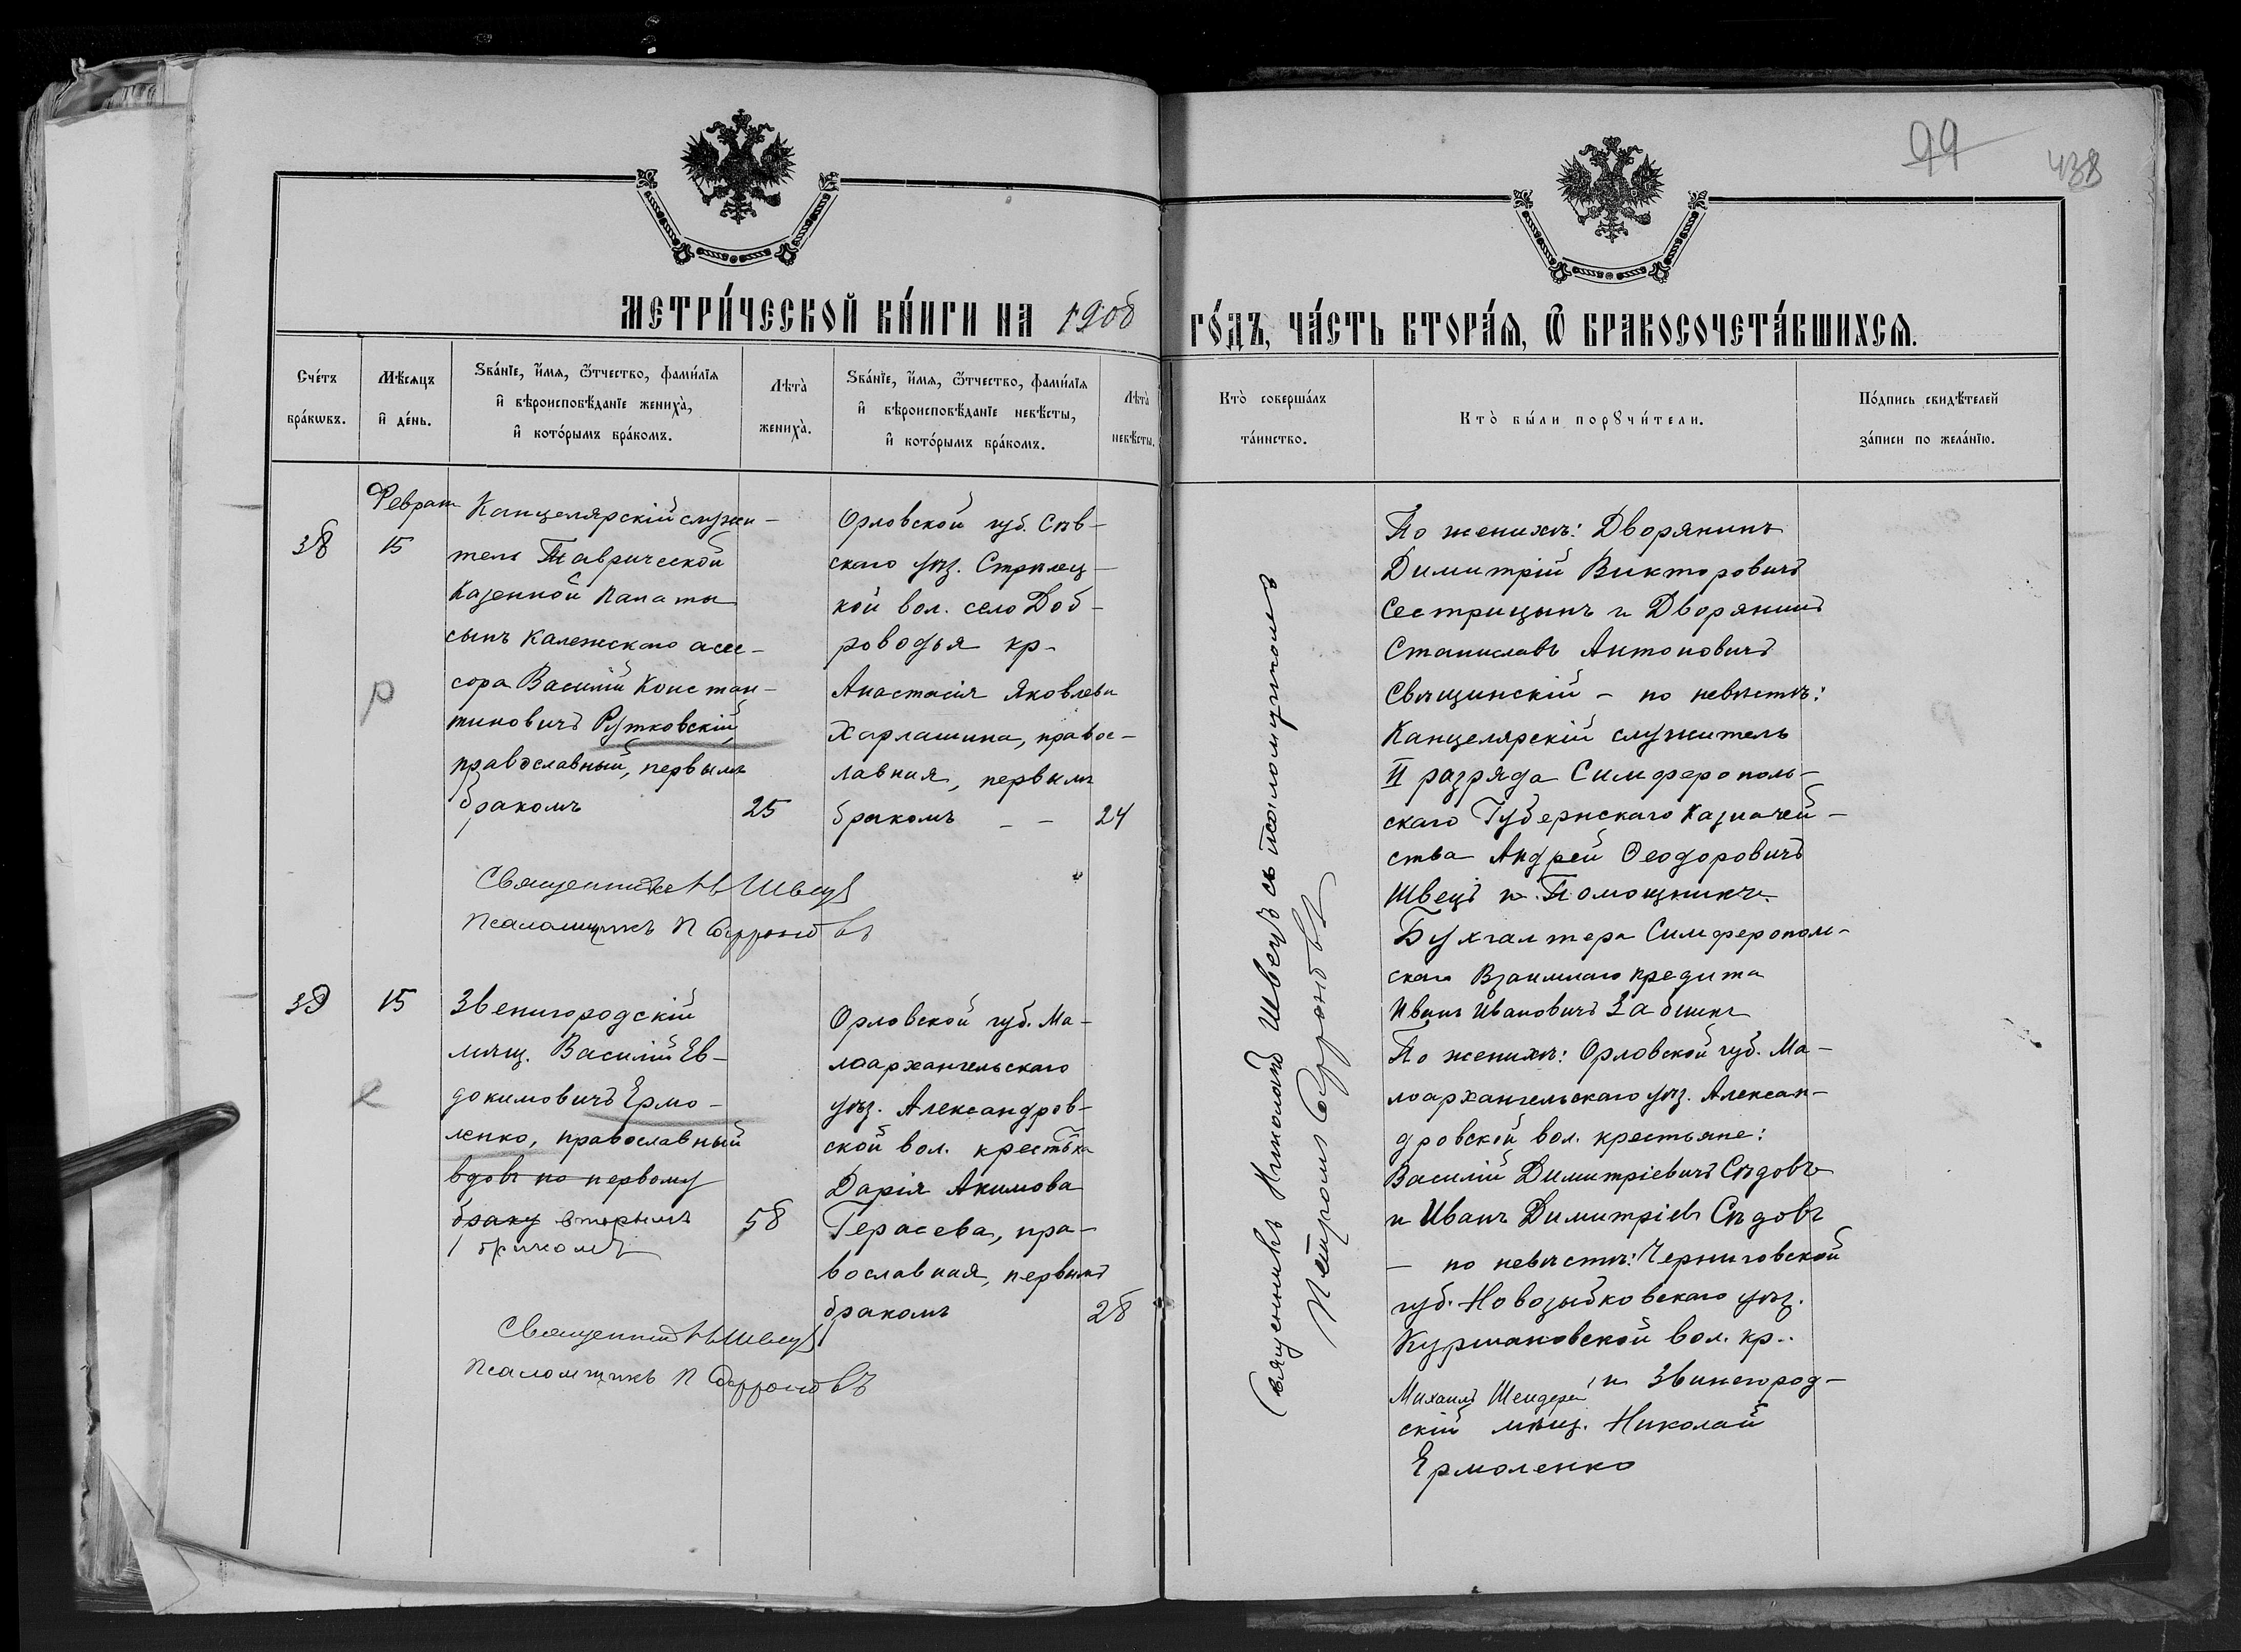 99
438
МЕТРИ́ЧЕСКОЙ КНИ́ГИ НА 1908 ГО́ДЪ, ЧА́СТЬ ВТОРА́Ѧ, Ѿ БРАКОСОЧЕТА́ВШИХСѦ.
Сче́тъ
бра́кѡвъ.
Мѣ́сѧцъ
и҆ де́нь.
Ѕва́нїе, и҆́мѧ, ѻ҆́тчество, фами́лїѧ
и҆ вѣроисповѣ́данїе жениха̀,
и҆ кото́рымъ бра́комъ.
Лѣта̀
жениха̀.
Ѕва́нїе, и҆́мѧ, ѻ҆́тчество, фами́лїѧ
и҆ вѣроисповѣ́данїе невѣ́сты,
и҆ кото́рымъ бра́комъ.
Лѣта̀
невѣ́сты.
Кто̀ соверша́лъ
та́инство.
Кто̀ бы́ли порꙋчи́тели.
По́дпись свидѣ́телей
за́писи по жела́нїю.
38
Феврал
15
Канцелярскій служи-
тель Таврической
Казенной Палаты
сынъ калежскаго асес-
сора Василій Констан-
тиновичъ Рутковскій,
православный, первымъ
бракомъ
25
Орловской губ. Сѣв-
скаго уѣз. Стрѣлец-
кой вол. село Доб-
роводья кр.
Анастасія Яковлева
Харлашина, правос-
лавная, первымъ
бракомъ - -
24
Священникъ Н Швецъ
Псаломщикъ П Софроновъ
Священникъ Николай Швецъ съ псаломщикомъ
Петромъ Софроновъ
По женихѣ: Дворянинъ
Димитрій Викторовичъ
Сестрицынъ и Дворянинъ
Станиславъ Антоновичъ
Свѣщинскій - по невѣстѣ:
Канцелярскій служитель
II разряда Симферополь-
скаго Губернскаго Казначей-
ства Андрей Ѳеодоровичъ
Швецъ и Помощникъ
Бухгалтера Симферополь-
скаго Взаимнаго Кредита
Иванъ Ивановичъ Забшинъ
39
15
Звенигородскій
мѣщ. Василій Ев-
докимовичъ Ермо-
ленко, православный
вдовъ по первому
браку вторымъ
бракомъ
58
Орловской губ. Ма-
лоархангельскаго
уѣз. Александров-
ской вол. крестьянка
Дарія Акимова
Герасева, пра-
вославная, первымъ
бракомъ
28
Священникъ Н Швецъ
Псаломщикъ П Софроновъ
По женихѣ: Орловской губ. Ма-
лоархангельскаго уѣз. Алексан-
дровской вол. крестьяне:
Василій Димитріевичъ Сѣдовъ
и Иванъ Димитріевъ Сѣдовъ
- по невѣстѣ: Черниговской
губ. Новозыбковскаго уѣз.
Куршановской вол. кр.
Михаилъ Шендера и Звинегород-
скій мѣщ. Николай
Ермоленко